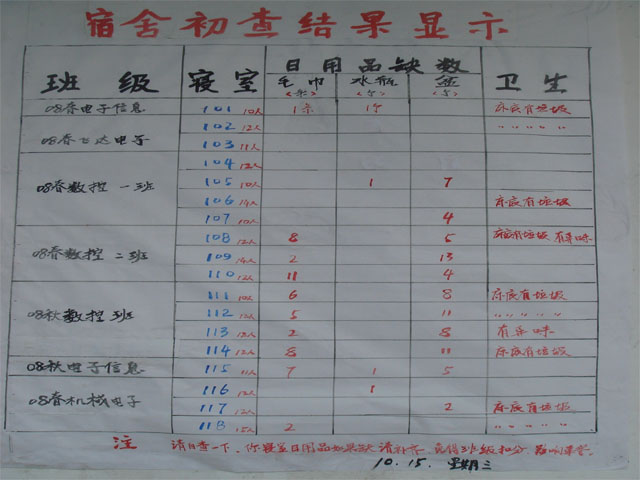 宿舍初查结果显示
班级 寝室 日用品缺数 卫生
毛巾 水瓶 盆
(条) (个) (个)
08春电子信息 101 10人 1条 1个 床底有垃圾
102 12人 〃 〃 〃 〃
08春飞达电子 103 11人
104 12人
08春数控一班 105 10人 1 7
106 14人 床底有垃圾
107 10人 4
108 12人 8 5 床底有垃圾 有臭味
08春数控二班 109 14人 2 13
110 12人 11 4
111 10人 6 8 床底有垃圾
08秋数控班 112 12人 5 11 〃 〃 〃 〃
113 12人 2 8 有臭味
114 12人 8 11 床底有垃圾
08秋电子信息 115 11人 7 1 5
116 12人 1
08春机械电子 117 12人 2 床底有垃圾
118 15人 2 〃 〃 〃 〃
注 请自查一下,你寝室日用品如果缺 请补齐 班级扣分
10.15. 星期三